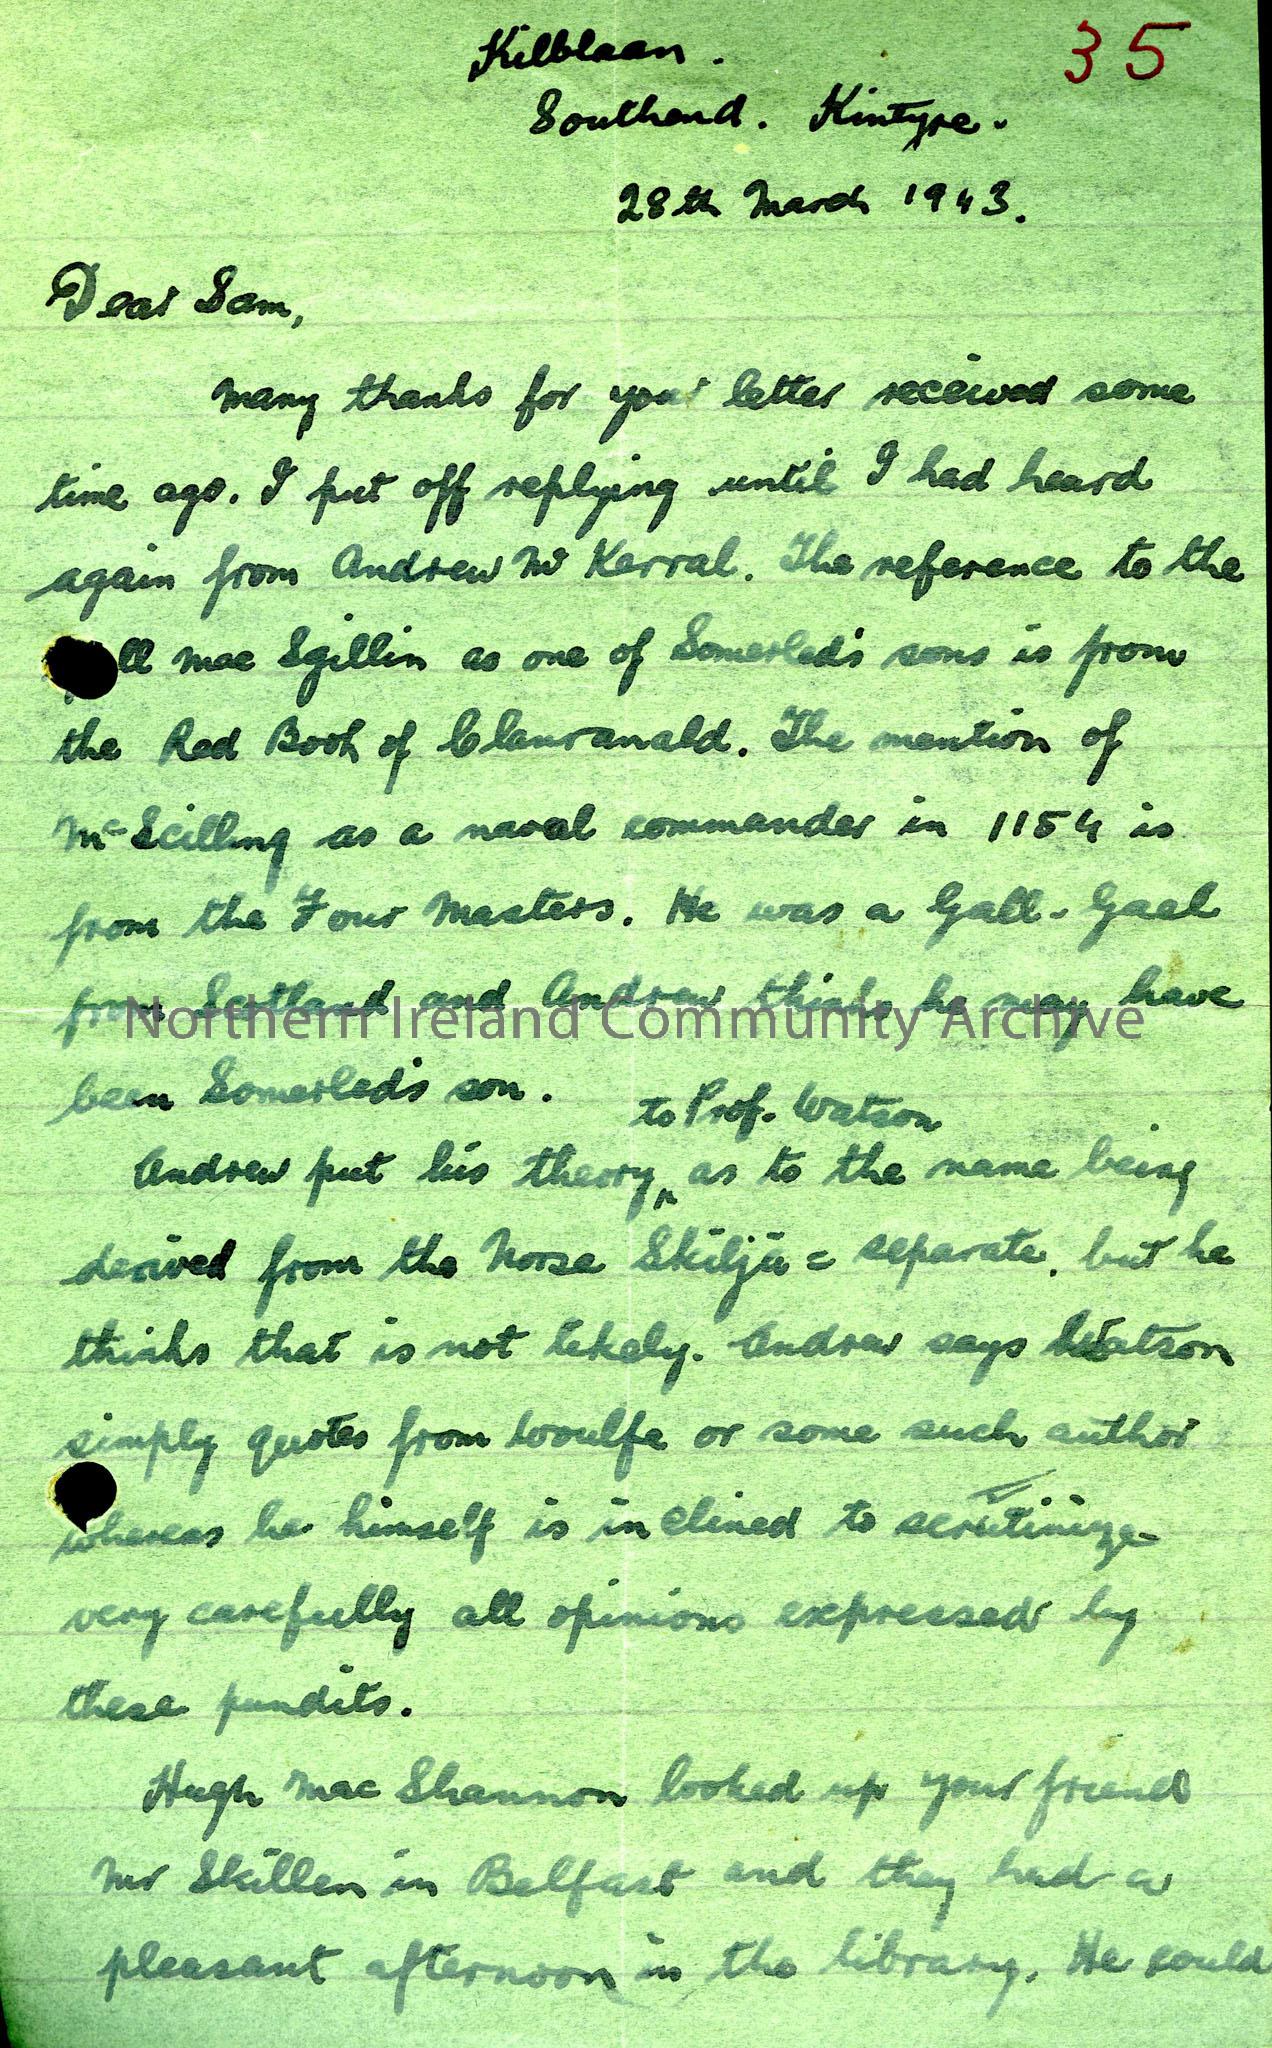 35
Kilblaan.
Southend. Kintyre.
28th March 1943.
Dear Sam,
Many thanks for your letter received some
time ago. I put off replying until I had heard
again from Andrew Mc Kerral. The reference to the
ll Mac Sgillin as one of Somerled's sons is from
the Red Book of Clanranald. The mention of
Mc Scilling as a naval commander in 1154 is
from the Four Masters. He was a Gall-Gael
from Scotland and Andrew thinks he may have
been Somerled's son.
Andrew put his theory to Prof. Watson as to the name being
derived from the Norse Skilja = separate, but he
thinks that is not likely. Andrew says Watson
simply quotes from Woulfe or some such author
whereas he himself is inclined to scrutinize
very carefully all opinions expressed by
these pundits.
Hugh Mac Shannon looked up your friend
Mr Skillen in Belfast and they had a
pleasant afternoon in the library. He could
Northern Ireland Community Archive